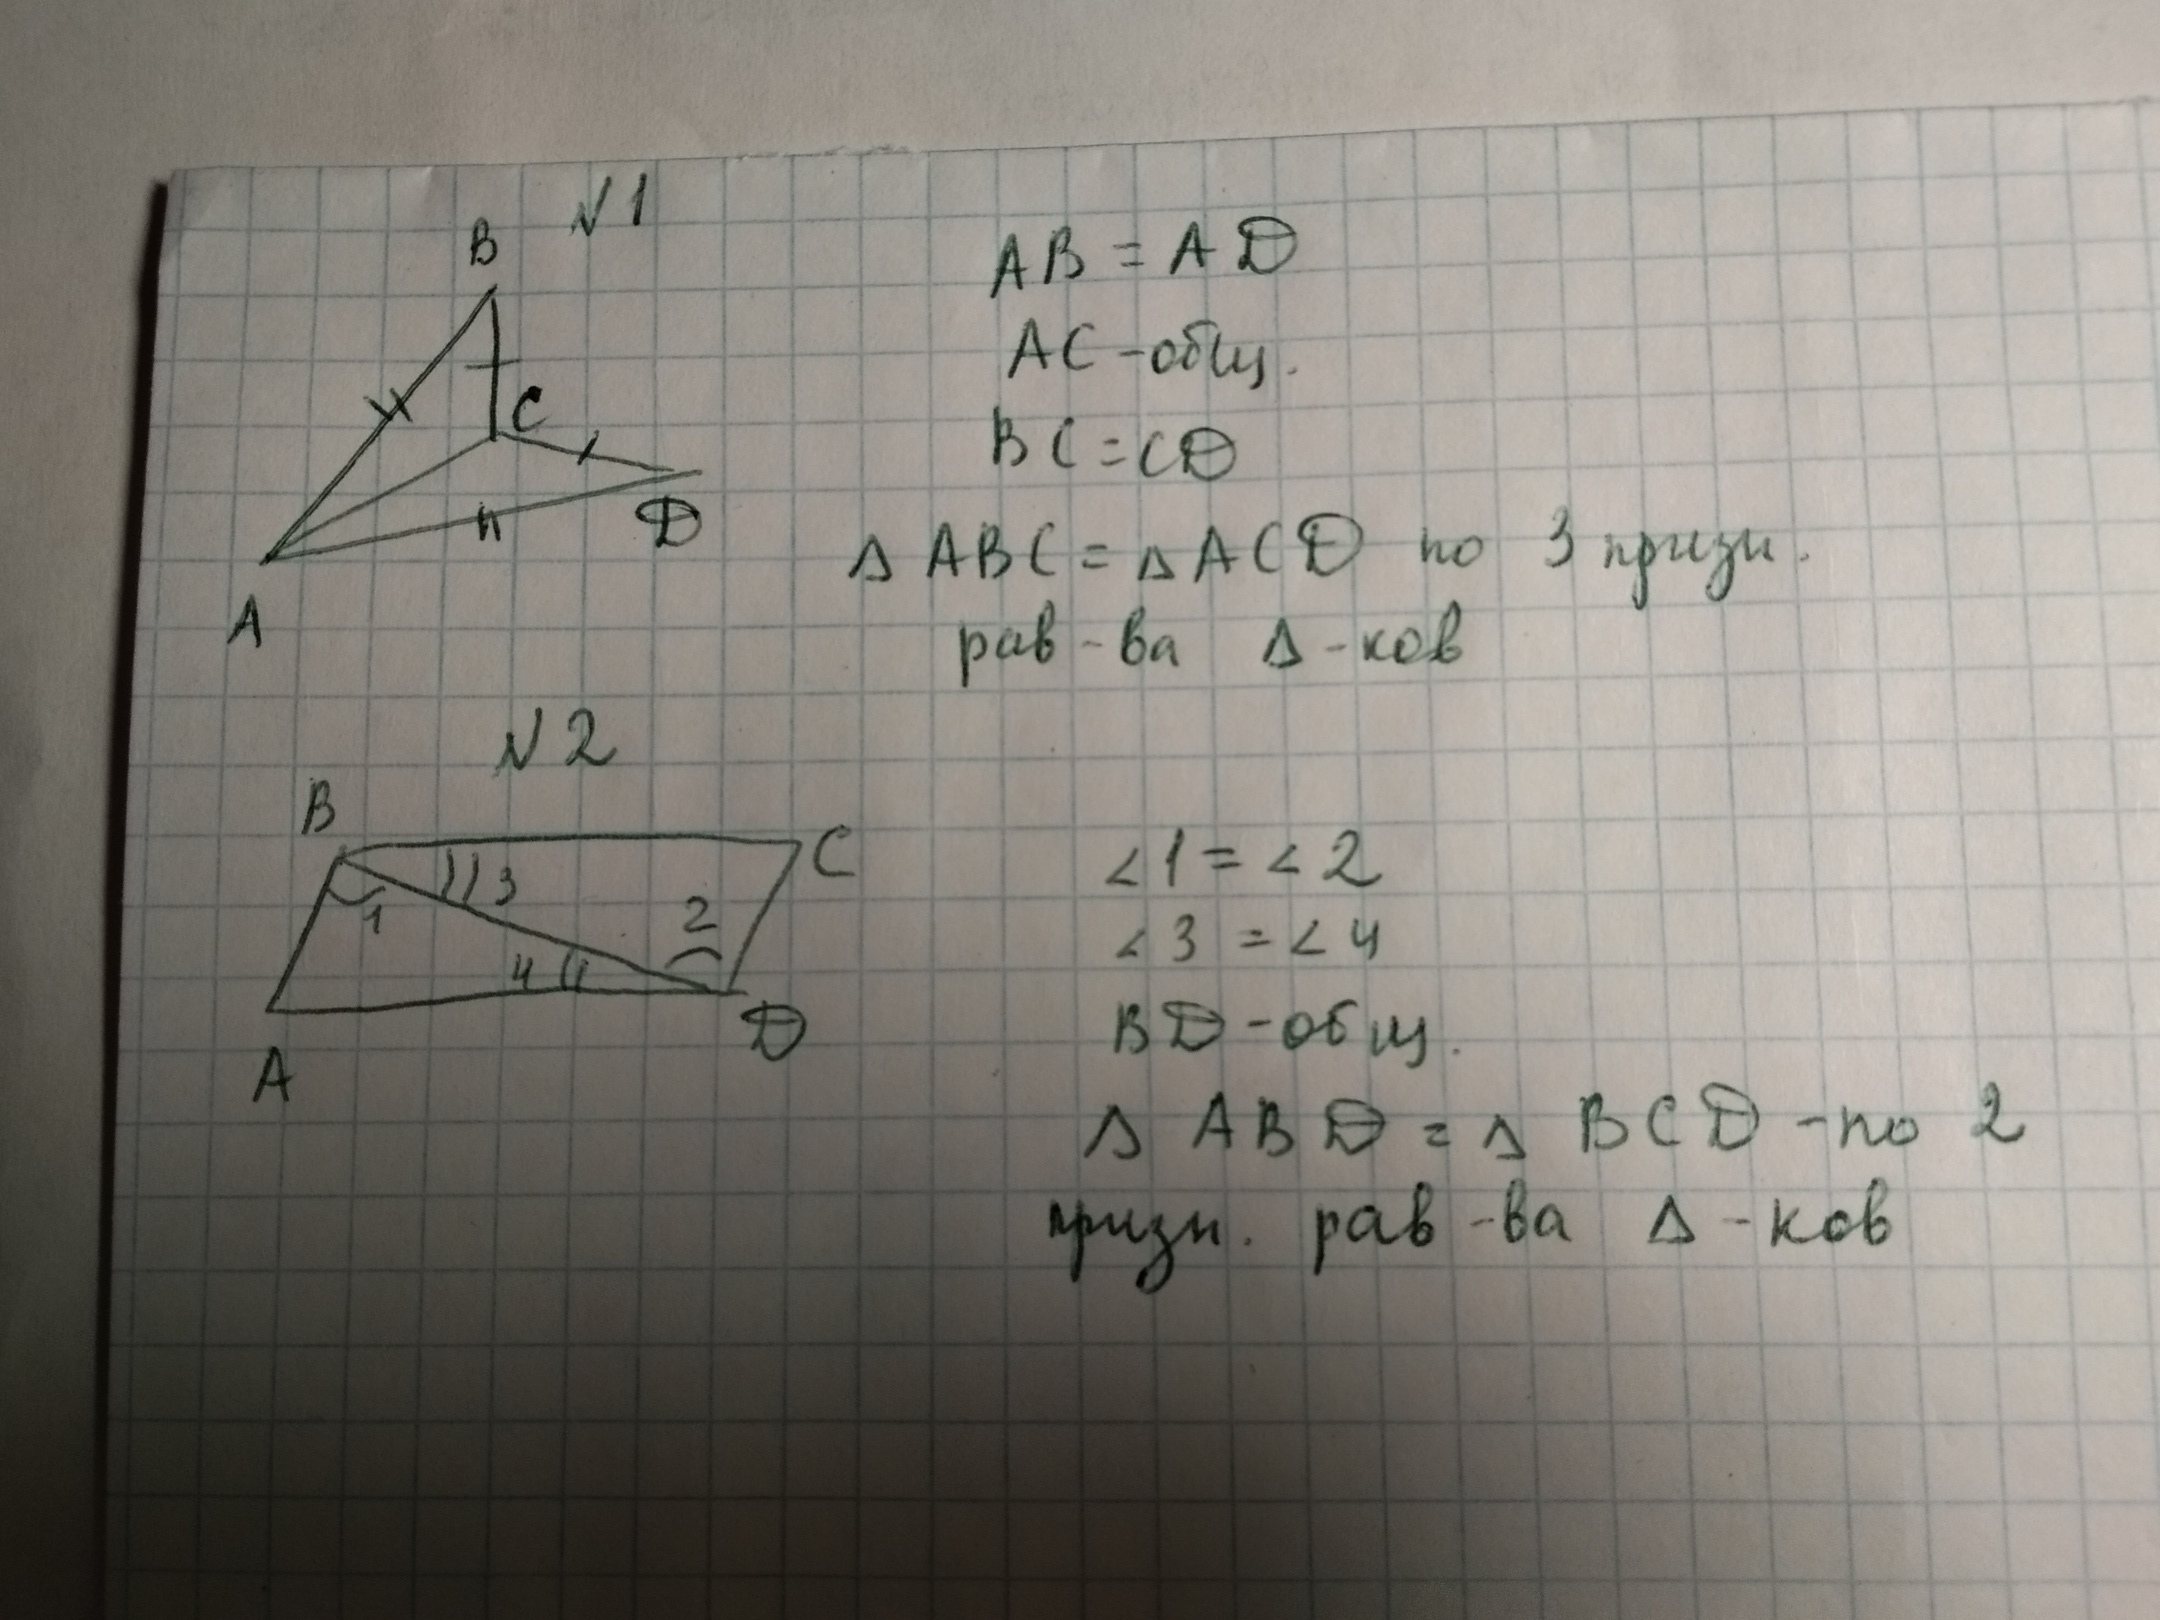 N1
B
C
D
A
AB = AD
AC - общ.
BC = CD
Δ ABC = Δ ACD по 3 призн.
рав-ва Δ-ков
N2
B
C
3
1
2
4
D
A
<1 = <2
<3 = <4
BD - общ.
Δ ABD = Δ BCD - по 2
призн. рав-ва Δ-ков